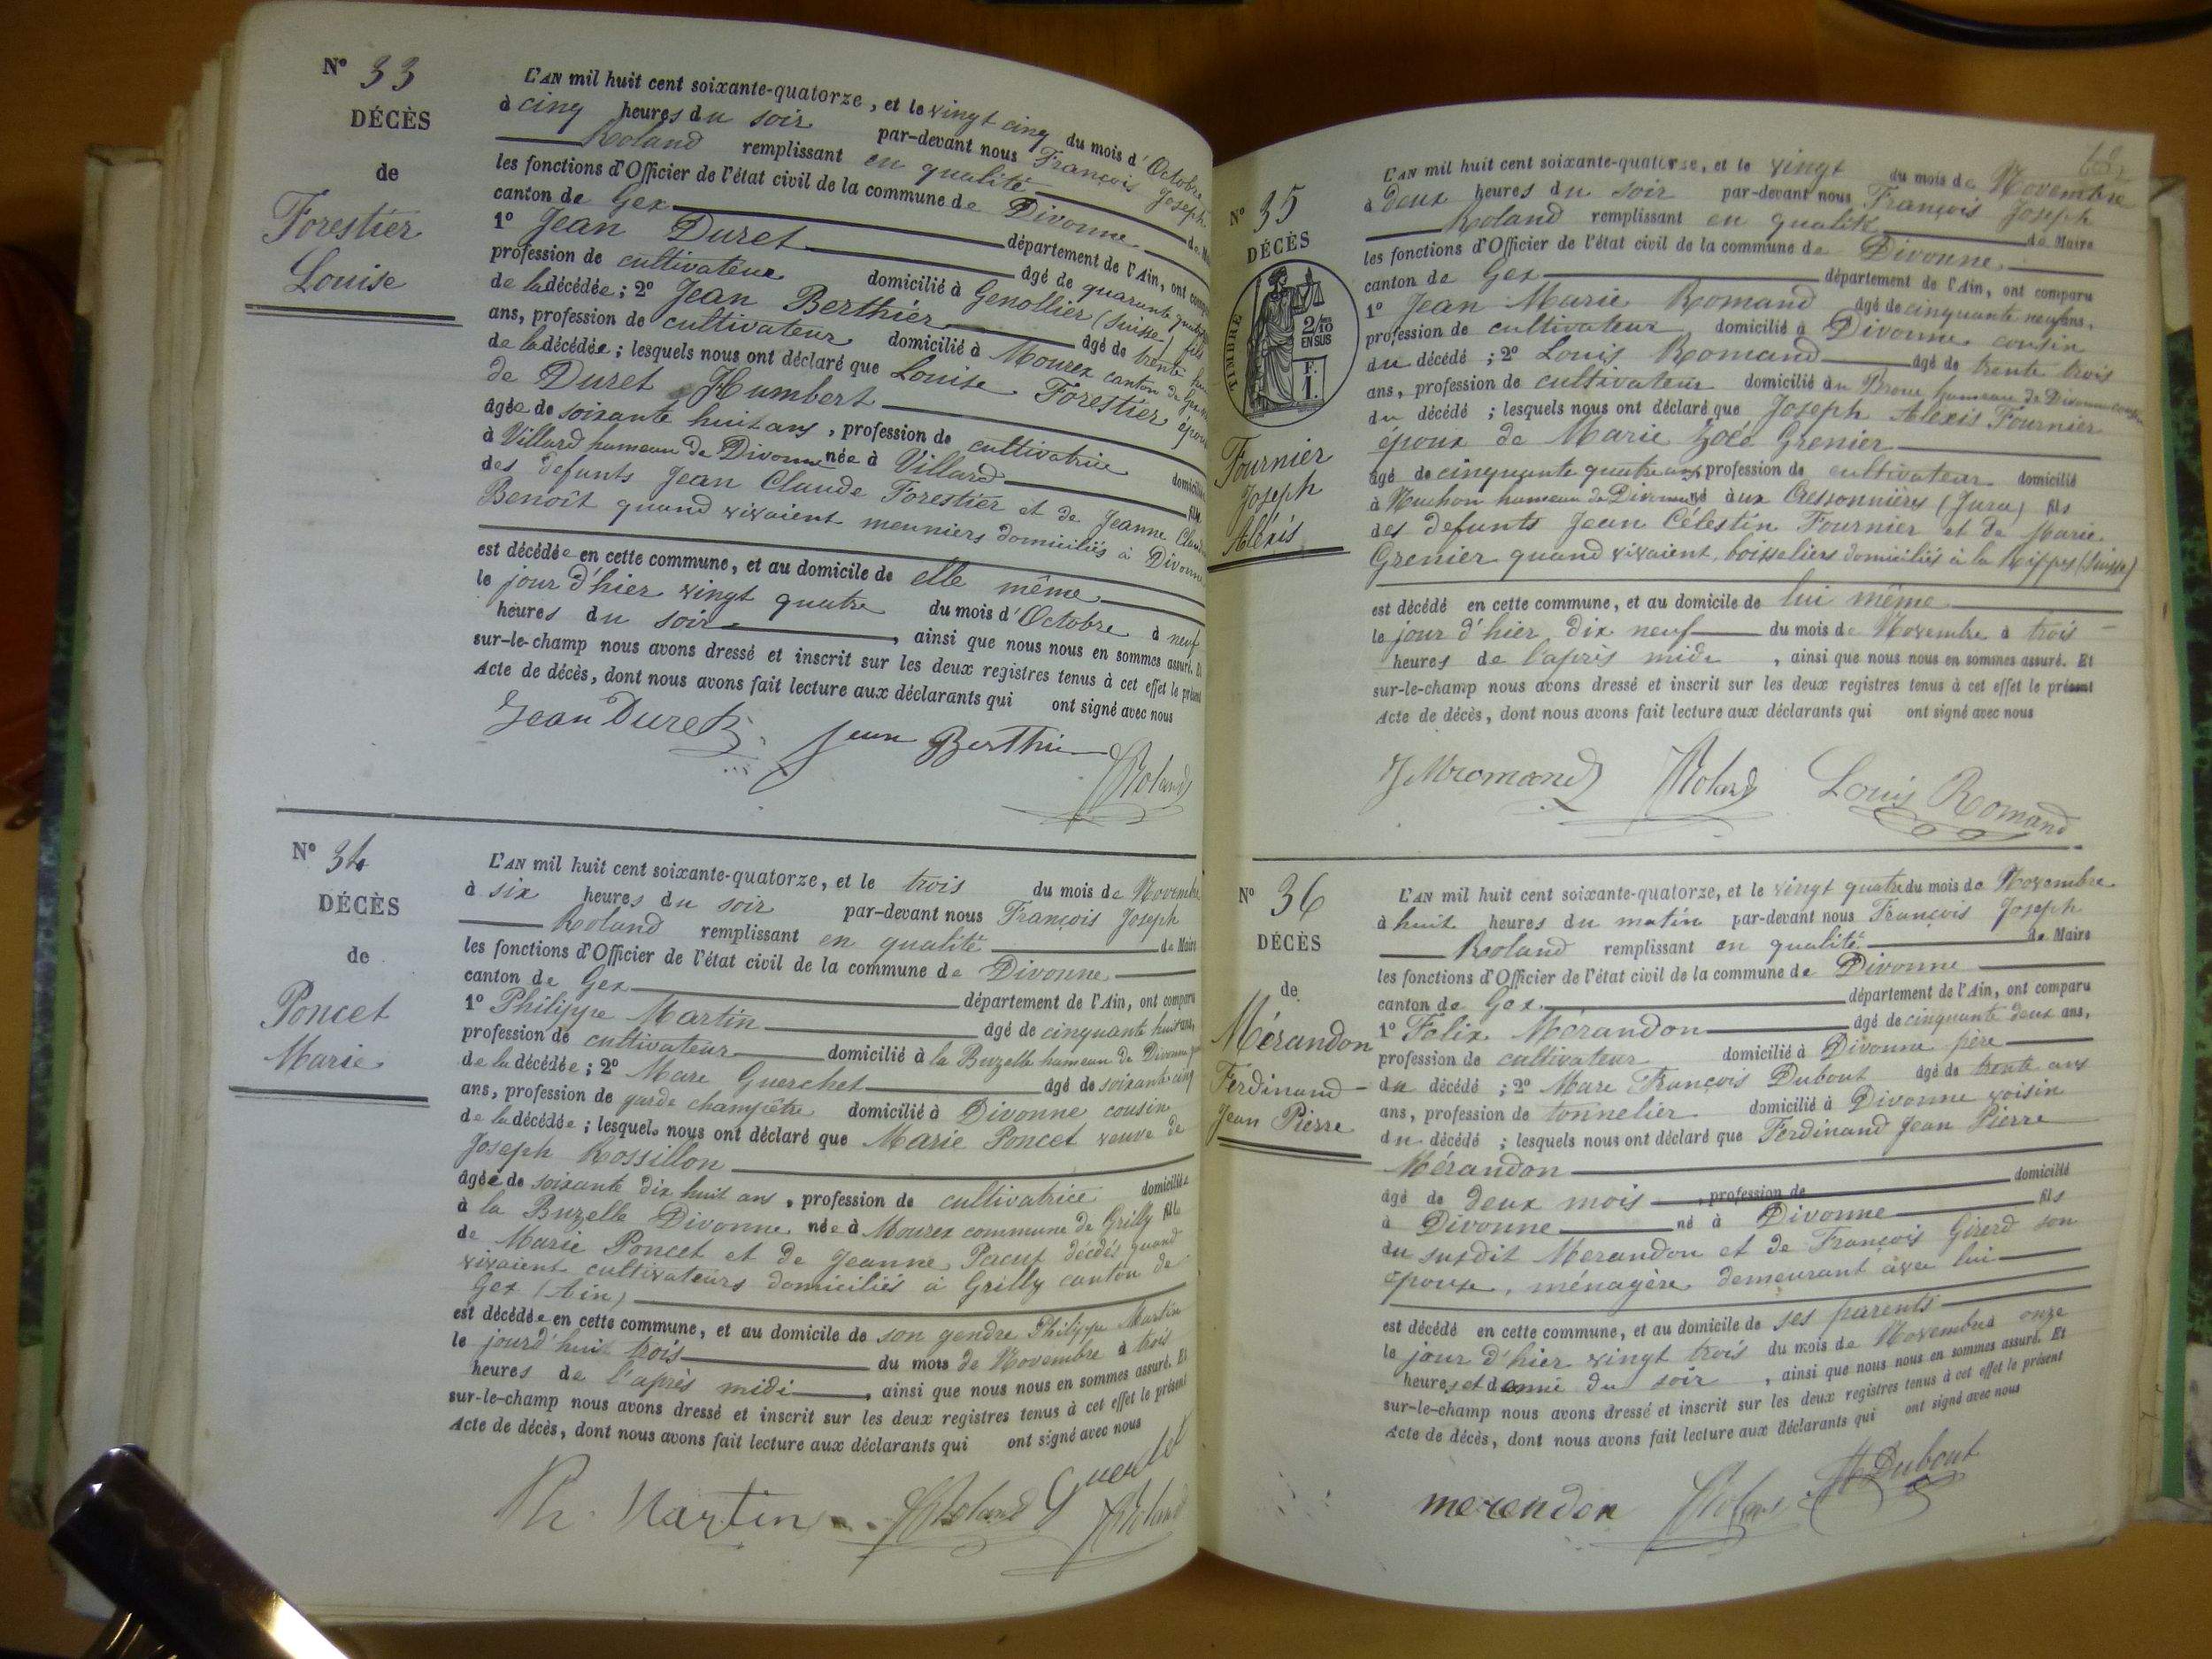 N° 33
DÉCÈS
de
Forestier
Louise
L'AN mil huit cent soixante-quatorze, et le vingt cinq du mois d'Octobre
à cinq heures du soir par-devant nous François Joseph
Roland remplissant en qualité de
les fonctions d'Officier de l'état civil de la commune de Divonne
canton de Gex département de l'Ain, ont
1° Jean Duret âgé de quarante
profession de cultivateur domicilié à Genollier (Suisse) fils
de la décédée ; 2° Jean Berthier âgé de trente
ans, profession de cultivateur domicilié à Mourex canton de
de la décédée ; lesquels nous ont déclaré que Louise Forestier
de Duret Humbert
âgée de soixante huit ans, profession de cultivatrice
à Villard hameau de Divonne née à Villard
des defunts Jean Claude Forestier et de Jeanne
Benoît quand vivaient meuniers domiciliés à Divonne
est décédée en cette commune, et au domicile de elle même
le jour d'hier vingt quatre du mois d'Octobre à neuf
heures du soir, ainsi que nous nous en sommes assuré. Et
sur-le-champ nous avons dressé et inscrit sur les deux registres tenus à cet effet le présent
Acte de décès, dont nous avons fait lecture aux déclarants qui ont signé avec nous
Jean Duret Jean Berthier
Roland
N° 34
DÉCÈS
de
Poncet
Marie
L'AN mil huit cent soixante-quatorze, et le trois du mois de Novembre
à six heures du soir par-devant nous François Joseph
Roland remplissant en qualité de Maire
les fonctions d'Officier de l'état civil de la commune de Divonne
canton de Gex département de l'Ain, ont comparu
1° Philippe Martin âgé de cinquante huit ans,
profession de cultivateur domicilié à la Buzelle hameau de Divonne
de la décédée ; 2° Marc Guerchet âgé de soixante cinq
ans, profession de garde champêtre domicilié à Divonne cousin
de la décédée ; lesquels nous ont déclaré que Marie Poncet veuve de
Joseph Rossillon
âgée de soixante dix huit ans, profession de cultivatrice domiciliée
à la Buzelle Divonne née à Mourex commune de Grilly fille
de Marie Poncet et de Jeanne décédés quand
vivaient cultivateurs domiciliés à Grilly canton de
Gex (Ain)
est décédée en cette commune, et au domicile de son gendre Philippe Martin
le jourd'hui trois du mois de Novembre à trois
heures de l'après midi, ainsi que nous nous en sommes assuré. Et
sur-le-champ nous avons dressé et inscrit sur les deux registres tenus à cet effet le présent
Acte de décès, dont nous avons fait lecture aux déclarants qui ont signé avec nous
Ph. Martin Roland
Roland
68
N° 35
DÉCÈS
TIMBRE
2/10
EN SUS
F.
1.
Fournier
Joseph
Aléxis
L'AN mil huit cent soixante-quatorze, et le vingt du mois de Novembre
à deux heures du soir par-devant nous François Joseph
Roland remplissant en qualité de Maire
les fonctions d'Officier de l'état civil de la commune de Divonne
canton de Gex département de l'Ain, ont comparu
1° Jean Marie Romand âgé de cinquante neuf ans,
profession de cultivateur domicilié à Divonne cousin
du décédé ; 2° Louis Romand âgé de trente trois
ans, profession de cultivateur domicilié hameau de Divonne
du décédé ; lesquels nous ont déclaré que Joseph Alexis Fournier
époux de Marie Zoéé Grenier
âgé de cinquante quatre ans, profession de cultivateur domicilié
à hameau de Divonne né aux Cressonnières (Jura) fils
des defunts Jean Célestin Fournier et de Marie
Grenier quand vivaient boisseliers domiciliés à la Rippe (Suisse)
est décédé en cette commune, et au domicile de lui même
le jour d'hier dix neuf du mois de Novembre à trois
heures de l'après midi, ainsi que nous nous en sommes assuré. Et
sur-le-champ nous avons dressé et inscrit sur les deux registres tenus à cet effet le présent
Acte de décès, dont nous avons fait lecture aux déclarants qui ont signé avec nous
JMromand Roland Louis Romand
N° 36
DÉCÈS
de
Mérandon
Ferdinand
Jean Pierre
L'AN mil huit cent soixante-quatorze, et le vingt quatre du mois de Novembre
à huit heures du matin par-devant nous François Joseph
Roland remplissant en qualité de Maire
les fonctions d'Officier de l'état civil de la commune de Divonne
canton de Gex département de l'Ain, ont comparu
1° Félix Mérandon âgé de cinquante deux ans,
profession de cultivateur domicilié à Divonne père
du décédé ; 2° Marc François Dubout âgé de trente ans
ans, profession de tonnelier domicilié à Divonne voisin
du décédé ; lesquels nous ont déclaré que Ferdinand Jean Pierre
Mérandon
âgé de deux mois, profession de domicilié
à Divonne né à Divonne fils
du susdit Merandon et de François Girerd son
épouse, ménagère demeurant avec lui
est décédé en cette commune, et au domicile de ses parents
le jour d'hier vingt trois du mois de Novembre à onze
heures et demie du soir, ainsi que nous nous en sommes assuré. Et
sur-le-champ nous avons dressé et inscrit sur les deux registres tenus à cet effet le présent
Acte de décès, dont nous avons fait lecture aux déclarants qui ont signé avec nous
merendon Roland Dubout